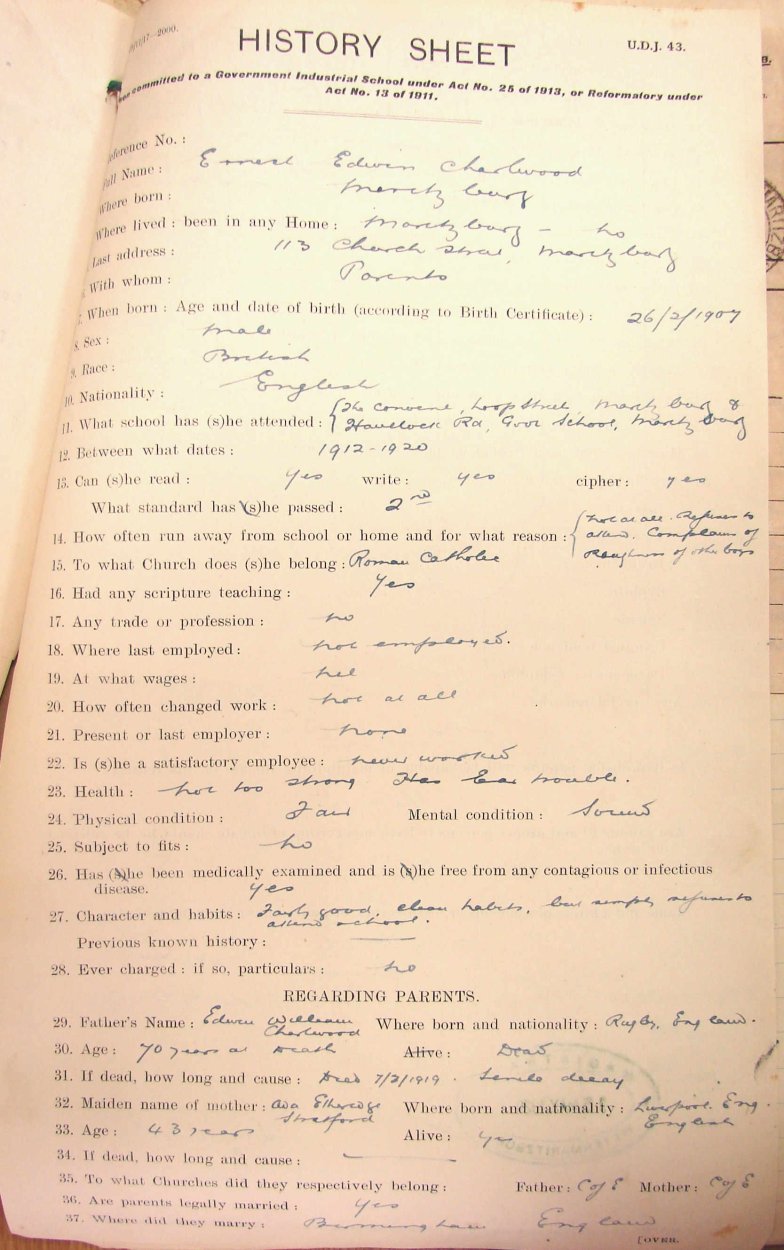 HISTORY SHEET
U.D.J. 43.
committed to a Government Industrial School under Act No. 25 of 1913, or Reformatory under
Act No. 13 of 1911.
Reference No. :
Full Name : Ernest Edwin Charlwood
Where born : Maritzburg
Where lived : been in any Home : Maritzburg – no
Last address : 113 Church Street, Maritzburg
With whom : Parents
7. When born : Age and date of birth (according to Birth Certificate) : 26/2/1907
8. Sex : male
9. Race : British
10. Nationality : English
11. What school has (s)he attended : { The Convent, Loop Street, Maritzburg &
Havelock Rd, Govt School, Maritzburg
12. Between what dates : 1912-1920
13. Can (s)he read : yes write : yes cipher : yes
What standard has (s)he passed : 2nd
14. How often run away from school or home and for what reason : { not at all. Refuses to
attend. Complains of
roughness of other boys
15. To what Church does (s)he belong : Roman Catholic
16. Had any scripture teaching : Yes
17. Any trade or profession : no
18. Where last employed : not employed.
19. At what wages : nil
20. How often changed work : not at all
21. Present or last employer : none
22. Is (s)he a satisfactory employee : never worked
23. Health : not too strong Has Ear trouble.
24. Physical condition : Fair Mental condition : Sound
25. Subject to fits : no
26. Has (s)he been medically examined and is (s)he free from any contagious or infectious
disease. yes
27. Character and habits : Fairly good, clean habits, but simply refuses to
attend school.
Previous known history : —
28. Ever charged : if so, particulars : no
REGARDING PARENTS.
29. Father's Name : Edwin William Charlwood Where born and nationality : Rugby, England.
30. Age : 70 years at death Alive : Dead
31. If dead, how long and cause : Died 7/2/1919. Senile decay
32. Maiden name of mother : Ada Etheredge Stratford Where born and nationality : Liverpool. Eng.
English
33. Age : 43 years Alive : yes
34. If dead, how long and cause : —
35. To what Churches did they respectively belong : Father : C of E Mother : C of E
36. Are parents legally married : yes
37. Where did they marry : Birmingham England
[OVER.